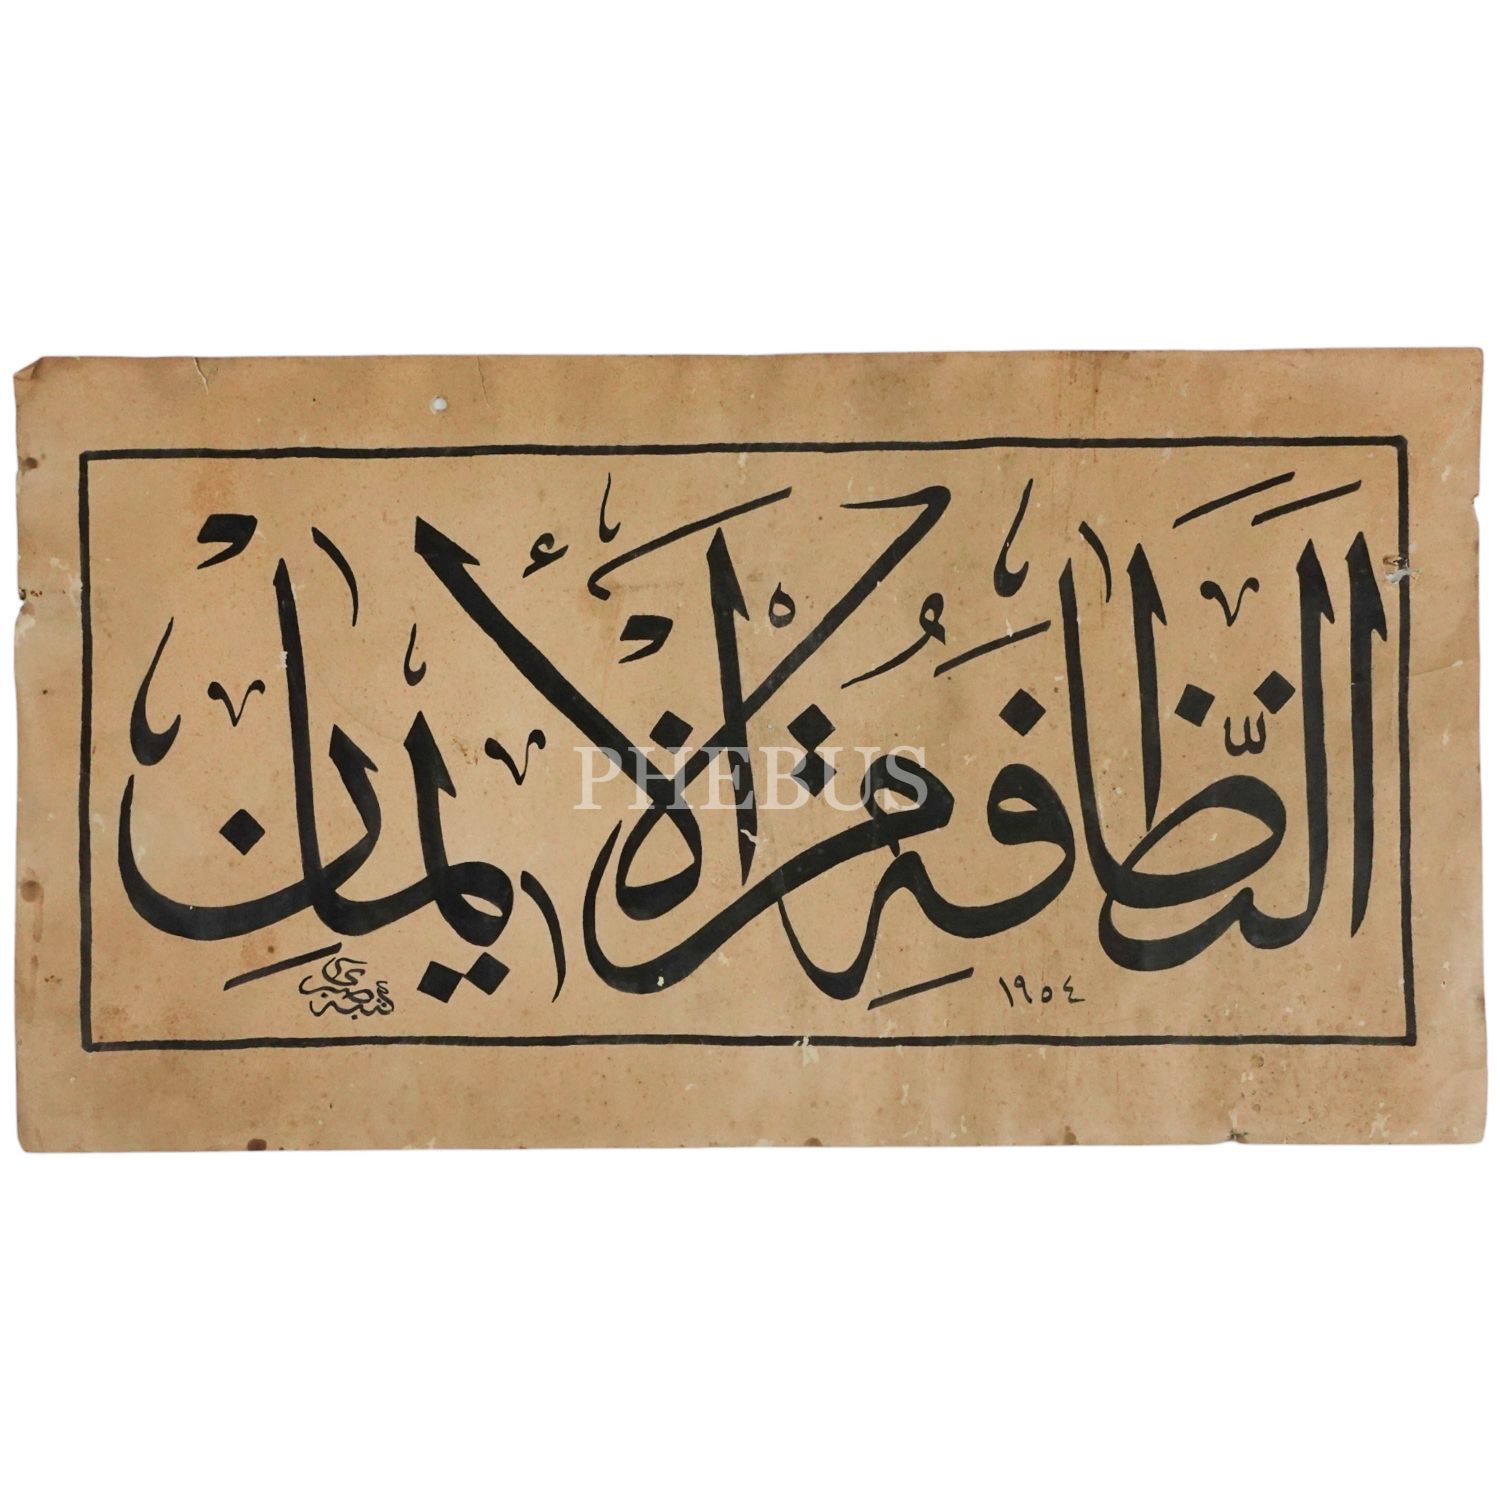 النَّظَافَةُ مِنَ الْإِيمَانِ
١٩٥٤
PHEBUS